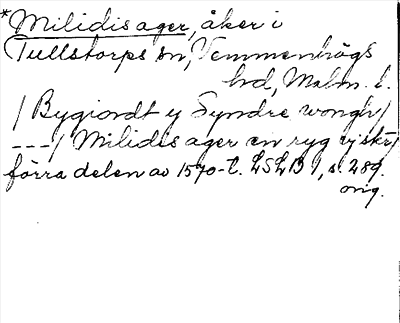 *Milidis ager, åker i
Tullstorps sn, Vemmenhögs
hd, Malm. l.
/ Bygiordt y Syndre wongh/
---/ Milidis ager en ryg
förra delen av 1570-t. LSLB 1, s. 289.
orig.